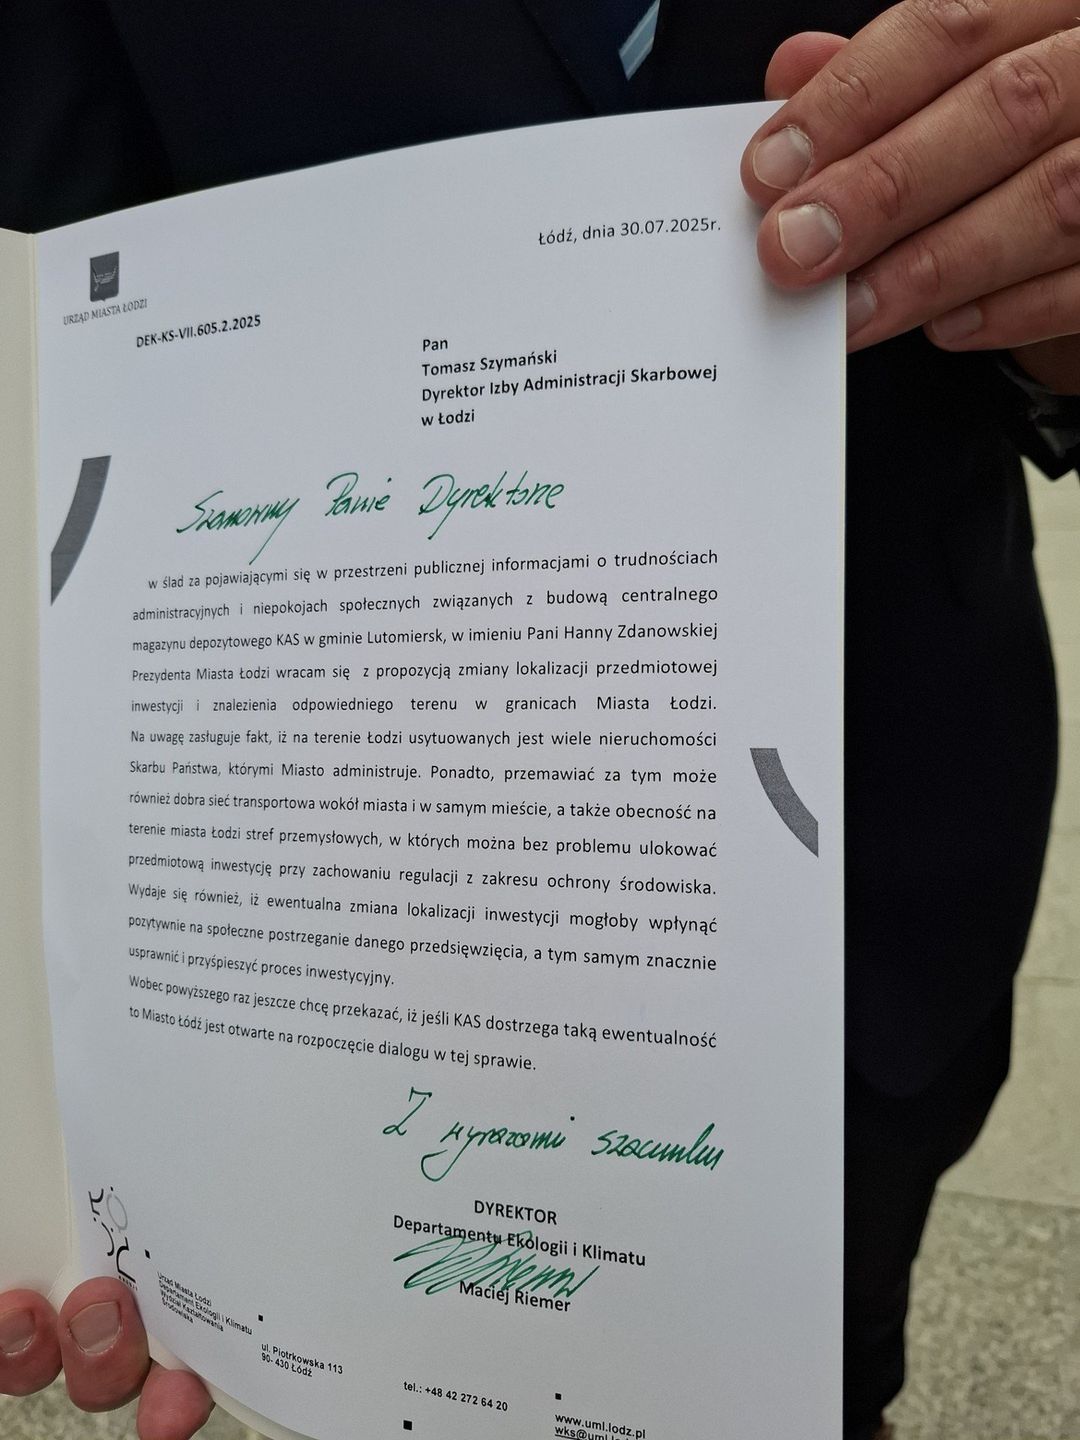 Łódź, dnia 30.07.2025r.
URZĄD MIASTA ŁODZI
DEK-KS-VII.605.2.2025
Pan
Tomasz Szymański
Dyrektor Izby Administracji Skarbowej
w Łodzi
Szanowny Panie Dyrektorze
w ślad za pojawiającymi się w przestrzeni publicznej informacjami o trudnościach
administracyjnych i niepokojach społecznych związanych z budową centralnego
magazynu depozytowego KAS w gminie Lutomiersk, w imieniu Pani Hanny Zdanowskiej
Prezydenta Miasta Łodzi wracam się z propozycją zmiany lokalizacji przedmiotowej
inwestycji i znalezienia odpowiedniego terenu w granicach Miasta Łodzi.
Na uwagę zasługuje fakt, iż na terenie Łodzi usytuowanych jest wiele nieruchomości
Skarbu Państwa, którymi Miasto administruje. Ponadto, przemawiać za tym może
również dobra sieć transportowa wokół miasta i w samym mieście, a także obecność na
terenie miasta Łodzi stref przemysłowych, w których można bez problemu ulokować
przedmiotową inwestycję przy zachowaniu regulacji z zakresu ochrony środowiska.
Wydaje się również, iż ewentualna zmiana lokalizacji inwestycji mogłoby wpłynąć
pozytywnie na społeczne postrzeganie danego przedsięwzięcia, a tym samym znacznie
usprawnić i przyśpieszyć proces inwestycyjny.
Wobec powyższego raz jeszcze chcę przekazać, iż jeśli KAS dostrzega taką ewentualność
to Miasto Łódź jest otwarte na rozpoczęcie dialogu w tej sprawie.
Z wyrazami szacunku
DYREKTOR
Departamentu Ekologii i Klimatu
Maciej Riemer
Urząd Miasta Łodzi
Departament Ekologii i Klimatu
Wydział Kształtowania
Środowiska
ul. Piotrkowska 113
90- 430 Łódź
tel.: +48 42 272 64 20
www.uml.lodz.pl
wks@uml.lodz.pl